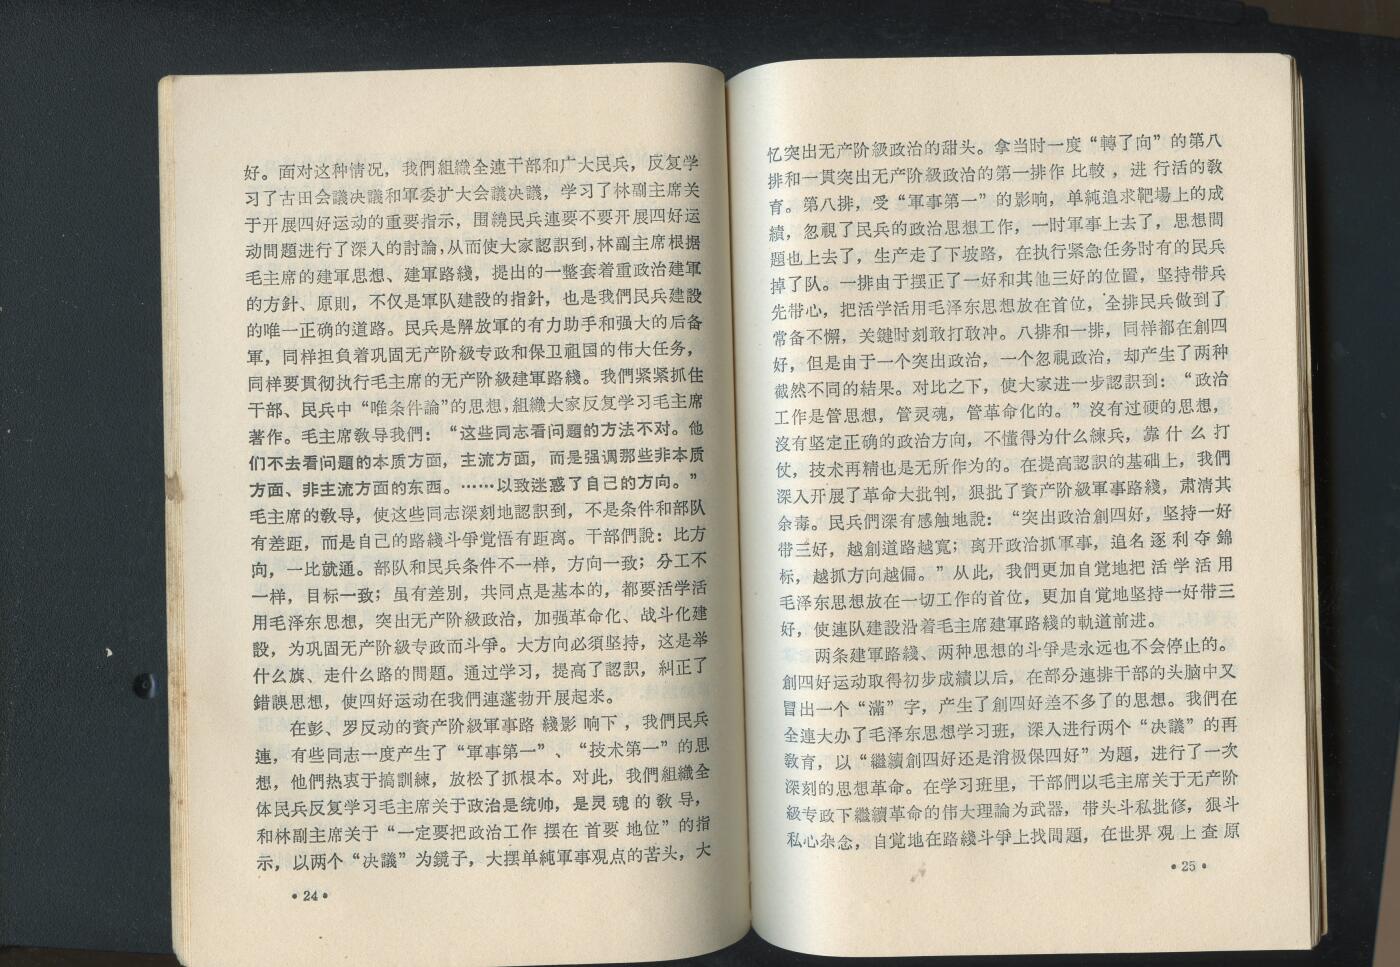 好。面对这种情况，我們組織全連干部和广大民兵，反复学
习了古田会議决議和軍委扩大会議决議，学习了林副主席关
于开展四好运动的重要指示，围繞民兵連要不要开展四好运
动問題进行了深入的討論，从而使大家認識到，林副主席根据
毛主席的建軍思想、建軍路綫，提出的一整套着重政治建軍
的方針、原則，不仅是軍队建設的指針，也是我們民兵建設
的唯一正确的道路。民兵是解放軍的有力助手和强大的后备
軍，同样担負着巩固无产阶級专政和保卫祖国的伟大任务，
同样要貫彻执行毛主席的无产阶級建軍路綫。我們紧紧抓住
干部、民兵中“唯条件論”的思想，組織大家反复学习毛主席
著作。毛主席敎导我們：“这些同志看問題的方法不对。他
們不去看問題的本质方面，主流方面，而是强调那些非本质
方面、非主流方面的东西。……以致迷惑了自己的方向。”
毛主席的敎导，使这些同志深刻地認識到，不是条件和部队
有差距，而是自己的路綫斗爭覚悟有距离。干部們說：比方
向，一比就通。部队和民兵条件不一样，方向一致；分工不
一样，目标一致；虽有差別，共同点是基本的，都要活学活
用毛泽东思想，突出无产阶級政治，加强革命化、战斗化建
設，为巩固无产阶級专政而斗爭。大方向必須坚持，这是举
什么旗、走什么路的問題。通过学习，提高了認識，糾正了
錯誤思想，使四好运动在我們連蓬勃开展起来。
在彭、罗反动的資产阶級軍事路綫影响下，我們民兵
連，有些同志一度产生了“軍事第一”、“技术第一”的思
想，他們热衷于搞訓練，放松了抓根本。对此，我們組織全
体民兵反复学习毛主席关于政治是統帅，是灵魂的敎导，
和林副主席关于“一定要把政治工作摆在首要地位”的指
示，以两个“决議”为鏡子，大摆单純軍事观点的苦头，大
•24•
忆突出无产阶級政治的甜头。拿当时一度“轉了向”的第八
排和一貫突出无产阶級政治的第一排作比較，进行活的敎
育。第八排，受“軍事第一”的影响，单純追求靶場上的成
績，忽視了民兵的政治思想工作，一时軍事上去了，思想問
題也上去了，生产走了下坡路，在执行紧急任务时有的民兵
掉了队。一排由于摆正了一好和其他三好的位置，坚持带兵
先带心，把活学活用毛泽东思想放在首位，全排民兵做到了
常备不懈，关鍵时刻敢打敢冲。八排和一排，同样都在創四
好，但是由于一个突出政治，一个忽視政治，却产生了两种
截然不同的結果。对比之下，使大家进一步認識到：“政治
工作是管思想，管灵魂，管革命化的。”沒有过硬的思想，
沒有坚定正确的政治方向，不懂得为什么練兵，靠什么打
仗，技术再精也是无所作为的。在提高認識的基础上，我們
深入开展了革命大批判，狠批了資产阶級軍事路綫，肃清其
余毒。民兵們深有感触地說：“突出政治創四好，坚持一好
带三好，越創道路越寬；离开政治抓軍事，追名逐利夺錦
标，越抓方向越偏。”从此，我們更加自覚地把活学活用
毛泽东思想放在一切工作的首位，更加自覚地坚持一好带三
好，使連队建設沿着毛主席建軍路綫的軌道前进。
两条建軍路綫、两种思想的斗爭是永远也不会停止的。
創四好运动取得初步成績以后，在部分連排干部的头脑中又
冒出一个“滿”字，产生了創四好差不多了的思想。我們在
全連大办了毛泽东思想学习班，深入进行两个“决議”的再
敎育，以“繼續創四好还是消极保四好”为題，进行了一次
深刻的思想革命。在学习班里，干部們以毛主席关于无产阶
級专政下繼續革命的伟大理論为武器，带头斗私批修，狠斗
私心杂念，自覚地在路綫斗爭上找問題，在世界观上查原
•25•